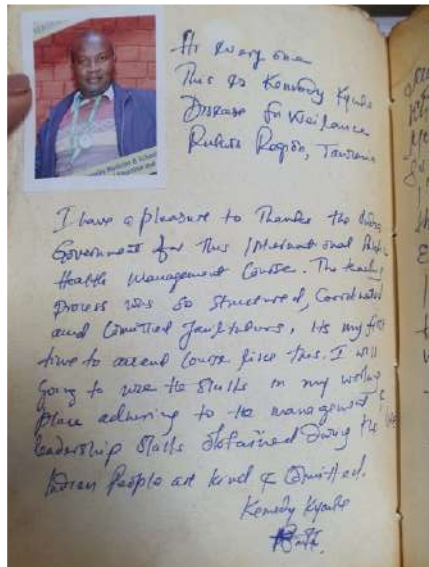 Hi every one
This is Kemedy Kyaube
Disease Surveillance
Rukwa Region, Tanzania
Medicine & School
I have a pleasure to Thanks the
Government for this International Public
Health Management Course. The teaching
process was so structured, Coordinated
and Committed facilitators, its my first
time to attend course like this. I will
going to use the skills in my working
place adhering to the management &
leadership skills obtained during the
Indian People are kind & Committed.
Kemedy